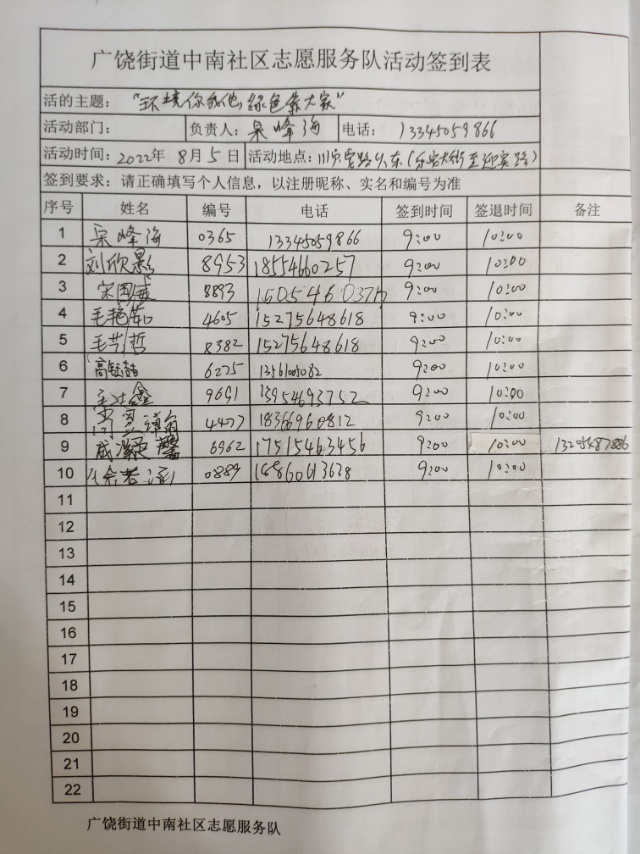 广饶街道中南社区志愿服务队活动签到表
活的主题：“环境你我他，绿色靠大家”
活动部门： 负责人：宋峰海 电话：13345059866
活动时间：2022年8月5日 活动地点：
签到要求：请正确填写个人信息，以注册昵称、实名和编号为准
序号 姓名 编号 电话 签到时间 签退时间 备注
1 宋峰海 0365 13345059866 9:00 10:00
2 刘欣影 8953 18554660257 9:00 10:00
3 8893 9:00 10:00
4 毛艳茹 4605 15275648618 9:00 10:00
5 8382 15275648618 9:00 10:00
6 6275 9:00 10:00
7 9691 13954693752 9:00 10:00
8 18366960812 9:00 10:00
9 6962 17515463456 9:00 10:00
10 0889 18860613628 9:00 10:00
11
12
13
14
15
16
17
18
19
20
21
22
广饶街道中南社区志愿服务队